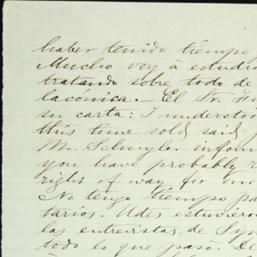 haber tenido tiempo
Mucho voy á estudia
tratando sobre todo de
laconica. — El Sr.
su carta: I understoo
this time sold, said
Mr. Schuyler inform
you have probably r
right of way for one
No tengo tiempo pa
tarios. Udes estuviero
las entrevistas de
todo lo que pasó. De